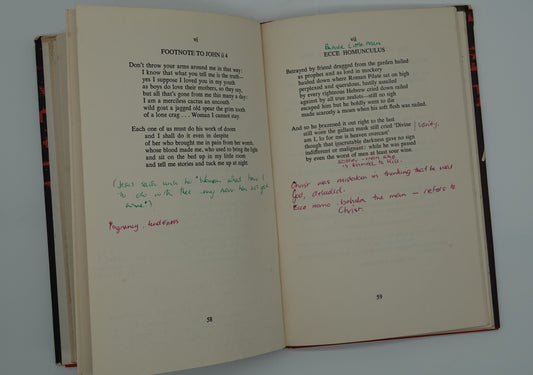 vi
FOOTNOTE TO JOHN ii 4
Don't throw your arms around me in that way:
I know that what you tell me is the truth—
yes I suppose I loved you in my youth
as boys do love their mothers, so they say,
but all that's gone from me this many a day:
I am a merciless cactus an uncouth
wild goat a jagged old spear the grim tooth
of a lone crag . . . Woman I cannot stay.
Each one of us must do his work of doom
and I shall do it even in despite
of her who brought me in pain from her womb,
whose blood made me, who used to bring the light
and sit on the bed up in my little room
and tell me stories and tuck me up at night
(Jesus said to "Woman what have I
to do with thee my hour has not yet
Pognancy, tenderness
58
vii
Behold Little Man
ECCE HOMUNCULUS
Betrayed by friend dragged from the garden hailed
as prophet and as lord in mockery
hauled down where Roman Pilate sat on high
perplexed and querulous, lustily assailed
by every righteous Hebrew cried down railed
against by all true zealots—still no sigh
escaped him but he boldly went to die
made scarcely a moan when his soft flesh was nailed.
And so he brazened it out right to the last
still wore the gallant mask still cried 'Divine
am I, lo for me is heaven overcast'
though that inscrutable darkness gave no sign
indifferent or malignant: while he was passed
by even the worst of men at least sour wine
Christ was mistaken in thinking that he was
God, deluded.
Ecce Homo, behold the man — refers to
Christ.
59